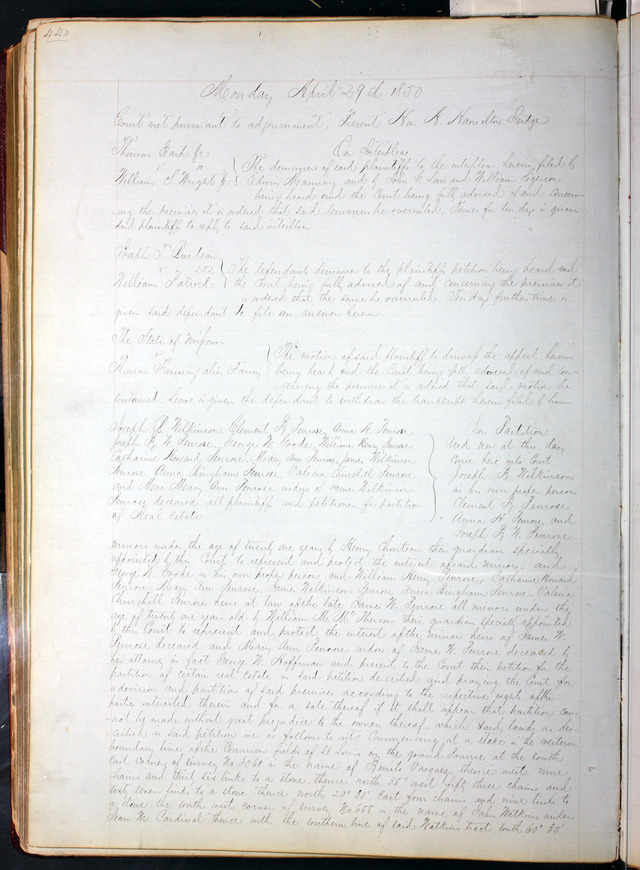 440
Monday April 29th 1850
Court met pursuant to adjournment. Present Hon A. Hamilton Judge
On Interpleas
Thomas
William S. Wright & { The demurrers of said plaintiffs to the interpleas herein filed by
Edwin Manning and by John and William
being heard and the Court being fully advised of and concern-
ing the premises it is ordered that said demurrers be overruled. Time for ten days is given
said plaintiffs to reply to said interpleas
Joseph
vs 202
William Patrick { The defendants demurrer to the plaintiffs petition being heard and
the Court being fully advised of and concerning the premises it
is ordered that the same be overruled. Ten days further time is
given said defendant to file an answer herein
The State of Missouri
Thomas { The motion of said Plaintiff to dismiss the appeal herein
being heard and the Court being fully advised of and con-
cerning the premises it is ordered that said motion be
sustained. Leave is given the defendant to withdraw the transcript herein filed by him
Joseph R. Wilkinson Clement B. Penrose, Anna H. Penrose
Joseph R. W. Penrose, George W. Goode, William Henry Penrose
Catharine Howard Penrose, Mary Ann Penrose, Jane Wilkinson
Penrose Anna Bingham Penrose, Valeria Churchill Penrose
and Mrs. Mary Ann Penrose widow of James Wilkinson
Penrose deceased all plaintiffs and petitioners for partition
of Real Estate
In Partition
And now at this day
come here into Court
Joseph R. Wilkinson
in his own proper person
Clement B. Penrose
Anna H. Penrose and
Joseph R. W. Penrose
minors under the age of twenty one years by Henry Chouteau their guardian specially
appointed by this Court to represent and protect the interest of said minors, and
George W. Goode in his own proper person and William Henry Penrose, Catharine Howard
Penrose Mary Ann Penrose, Jane Wilkinson Penrose Anna Bingham Penrose, Valeria
Churchill Penrose heirs at law of the late James W. Penrose all minors under the
age of twenty one years old by William M. McPherson their guardian specially appointed
by this Court to represent and protect the interest of the minor heirs of James W.
Penrose deceased and Mary Ann Penrose widow of James W. Penrose deceased by
her attorney in fact George W. Hoffman and present to the Court their petition for the
partition of certain real estate in said petition described and praying the Court for
a division and partition of said premises according to the respective rights of the
parties interested therein and for a sale thereof if it shall appear that partition can-
not be made without great prejudice to the owners thereof which said lands are de-
scribed in said petition are as follows to wit: Commencing at a stake in the western
boundary line of the Common fields of St Louis in the grand Prairie at the south
east corner of survey No 3061 in the name of Benito Vasquez thence west nine
chains and thirty six links to a stone thence north 35° west fifty three chains and
sixty seven links to a stone thence north 29° 30' East four chains and nine links to
a stone the south west corner of survey No 655 in the name of John Watkins under
Jean M. Cardinal thence with the southern line of said Watkins tract south 60° 30'